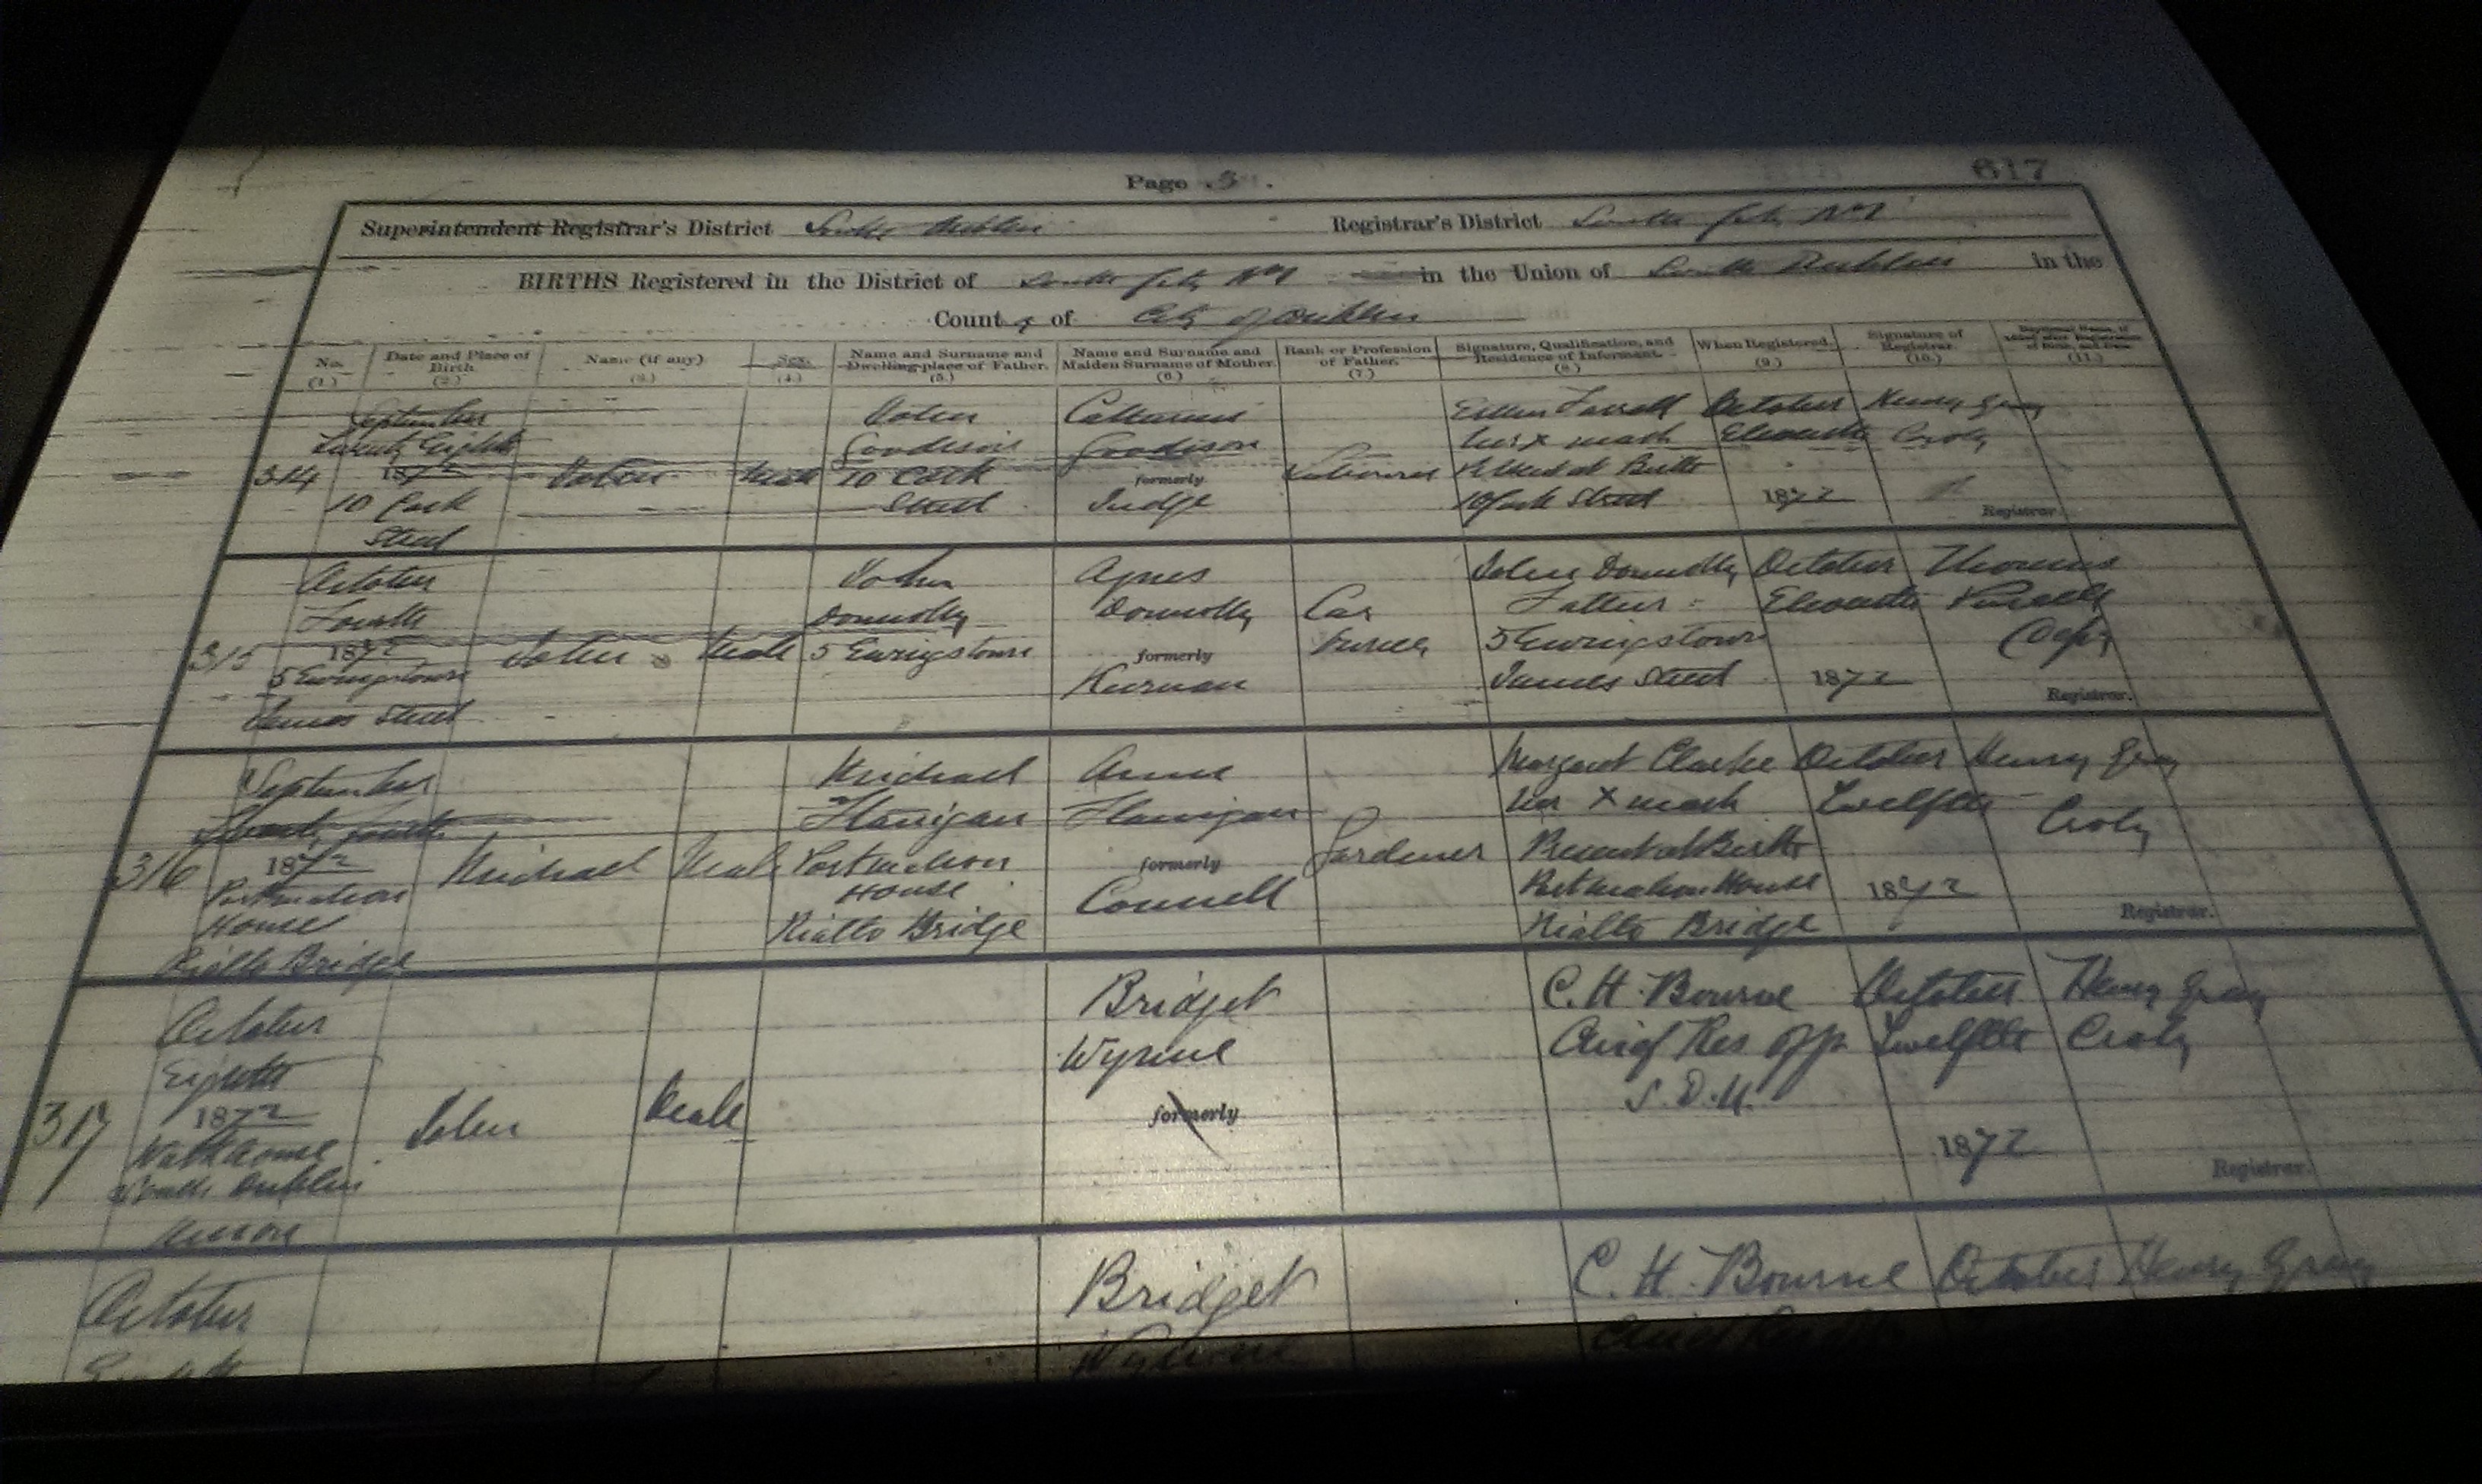 Page 3.
617
Superintendent Registrar's District South Dublin Registrar's District South City No 1
BIRTHS Registered in the District of South City No 1 in the Union of South Dublin in the
County of City of Dublin
No. (1.) Date and Place of Birth. (2.) Name (if any) (3.) Sex. (4.) Name and Surname and Dwelling-place of Father. (5.) Name and Surname and Maiden Surname of Mother. (6.) Rank or Profession of Father. (7.) Signature, Qualification, and Residence of Informant. (8.) When Registered. (9.) Signature of Registrar. (10.) (11.)
September John Catharine Farrell October Henry Gray
Twenty Eighth Goodison Goodison her x mark Eleventh Croly
314 1872 John Male 10 Cook formerly Labourer at Birth
10 Cook Street Judge 10 Cook Street 1872 Registrar.
Street
October John Agnes John Donnolly October Thomas
Fourth Donnolly Donnolly Car Father Eleventh Purcell
315 1872 John Male 5 Ewingstown formerly 5 Ewingstown
5 Ewingstown Kiernan James Street 1872 Registrar.
James Street
September Michael Anne Margaret Clarke October Henry Gray
Twenty fourth Flanigan Flanigan her x mark Twelfth Croly
316 1872 Michael Male Portmahon formerly Gardener Present at Birth
Portmahon House Connell Portmahon House 1872 Registrar.
House Rialto Bridge Rialto Bridge
Rialto Bridge
October Bridget C. H. Bourne October Henry Gray
Eighth Wynne Chief Res Off Twelfth Croly
317 1872 John Male formerly S. D. U.
Workhouse 1872 Registrar.
South Dublin
Union
October Bridget C. H. Bourne October Henry Gray
Wynne